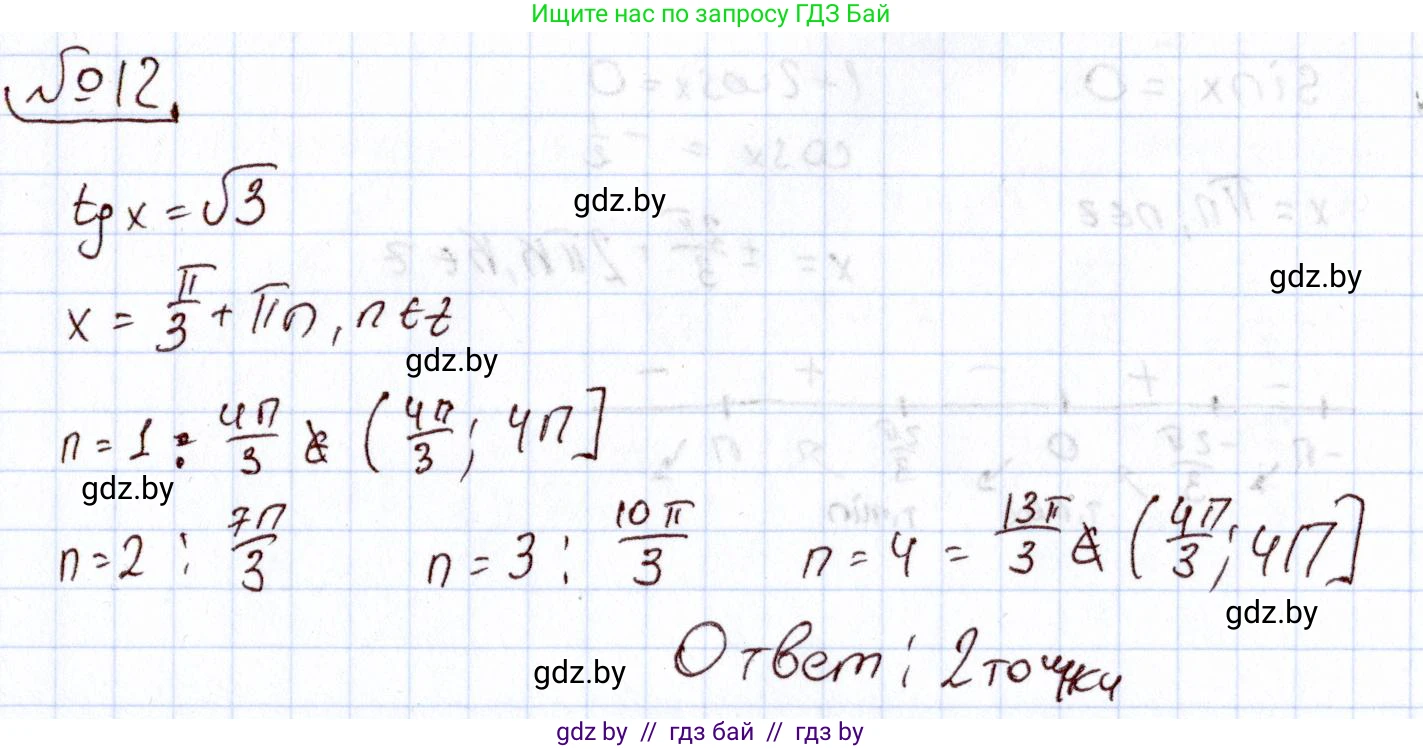 Ищите нас по запросу ГДЗ Бай
№12
tg x = √3
gdz.by
gdz.by
x = π/3 + πn, n ∈ z
gdz.by
n = 1 : 4π/3 ∉ (4π/3; 4π]
gdz.by
n = 2 : 7π/3 n = 3 : 10π/3 n = 4 = 13π/3 ∉ (4π/3; 4π]
gdz.by
Ответ: 2 точки
gdz.by
gdz.by // гдз бай // гдз by